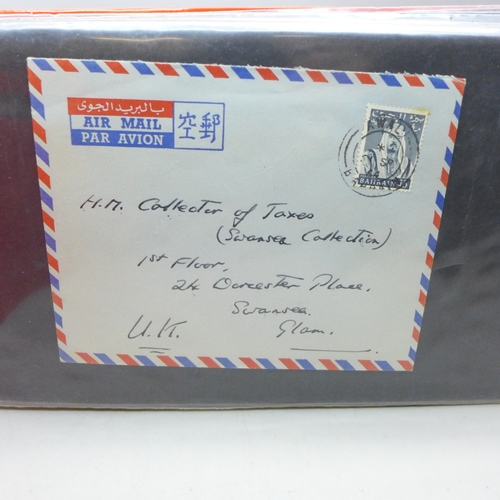 بالبريد الجوى
AIR MAIL
PAR AVION
空郵
H.M. Collector of Taxes
(Swansea Collection)
1st Floor,
24 Dorcester Place,
Swansea.
U.K. Glam.
BAHRAIN